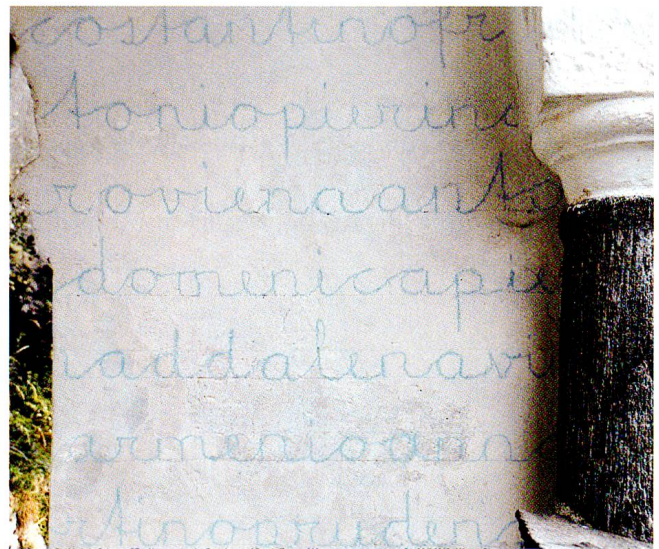 costantinofr
toniopierino
rovienaanto
domenicapie
addalenavi
armenioanna
rtinopruden